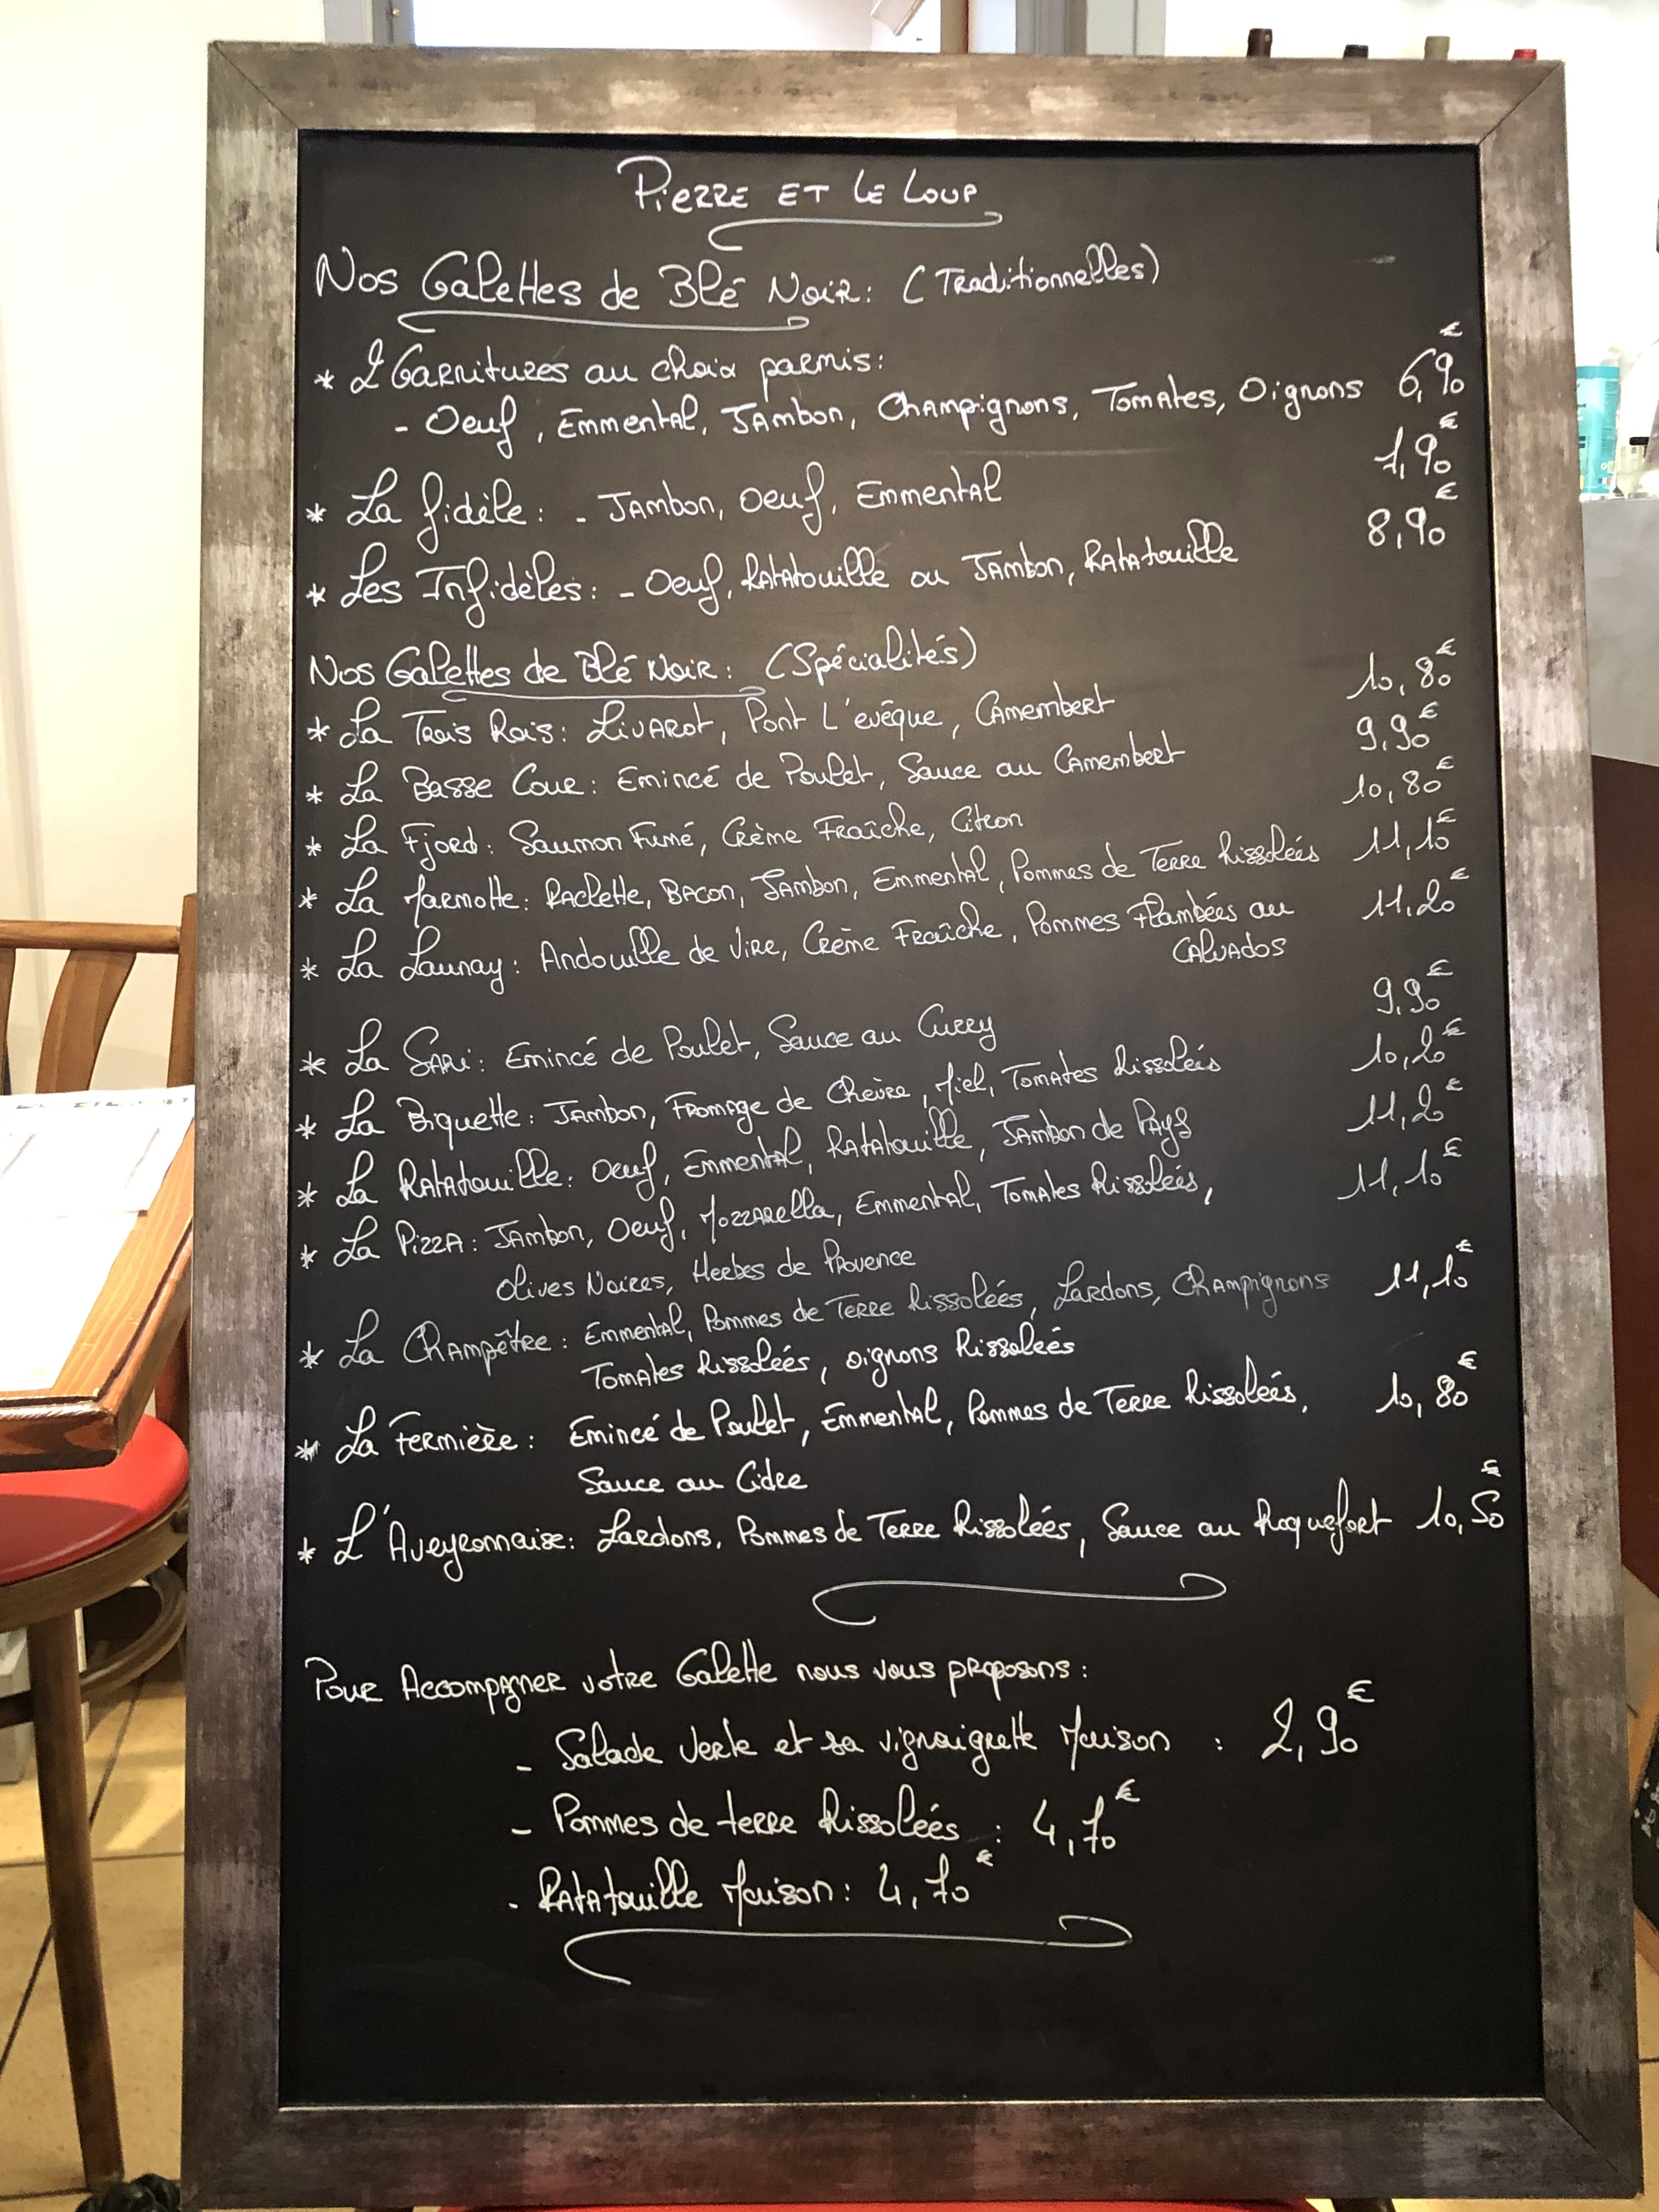 Pierre et le Loup
Nos Galettes de Blé Noir : (Traditionnelles)
* 2 Garnitures au choix parmis :
- Oeuf, Emmental, Jambon, Champignons, Tomates, Oignons 6,90€
* La fidèle : - Jambon, Oeuf, Emmental 7,90€
* Les Infidèles : - Oeuf, Ratatouille ou Jambon, Ratatouille 8,90€
Nos Galettes de Blé Noir : (Spécialités)
* La Trois Rois : Livarot, Pont L'evêque, Camembert 10,80€
* La Basse Cour : Emincé de Poulet, Sauce au Camembert 9,90€
* La Fjord : Saumon Fumé, Crème Fraîche, Citron 10,80€
* La Marmotte : Raclette, Bacon, Jambon, Emmental, Pommes de Terre Rissolées 11,10€
* La Launay : Andouille de Vire, Crème Fraîche, Pommes Flambées au 11,20€
Calvados
* La Sari : Emincé de Poulet, Sauce au Curry 9,90€
* La Biquette : Jambon, Fromage de Chèvre, Miel, Tomates Rissolées 10,20€
* La Ratatouille : Oeuf, Emmental, Ratatouille, Jambon de Pays 11,20€
* La Pizza : Jambon, Oeuf, Mozzarella, Emmental, Tomates Rissolées, 11,10€
Olives Noires, Herbes de Provence
* La Champêtre : Emmental, Pommes de Terre Rissolées, Lardons, Champignons 11,10€
Tomates Rissolées, oignons Rissolées
* La Fermière : Emincé de Poulet, Emmental, Pommes de Terre Rissolées, 10,80€
Sauce au Cidre
* L'Aveyronnaise : Lardons, Pommes de Terre Rissolées, Sauce au Roquefort 10,50€
Pour Accompagner votre Galette nous vous proposons :
- Salade Verte et sa vignaigrette Maison : 2,90€
- Pommes de terre Rissolées : 4,70€
- Ratatouille Maison : 4,70€